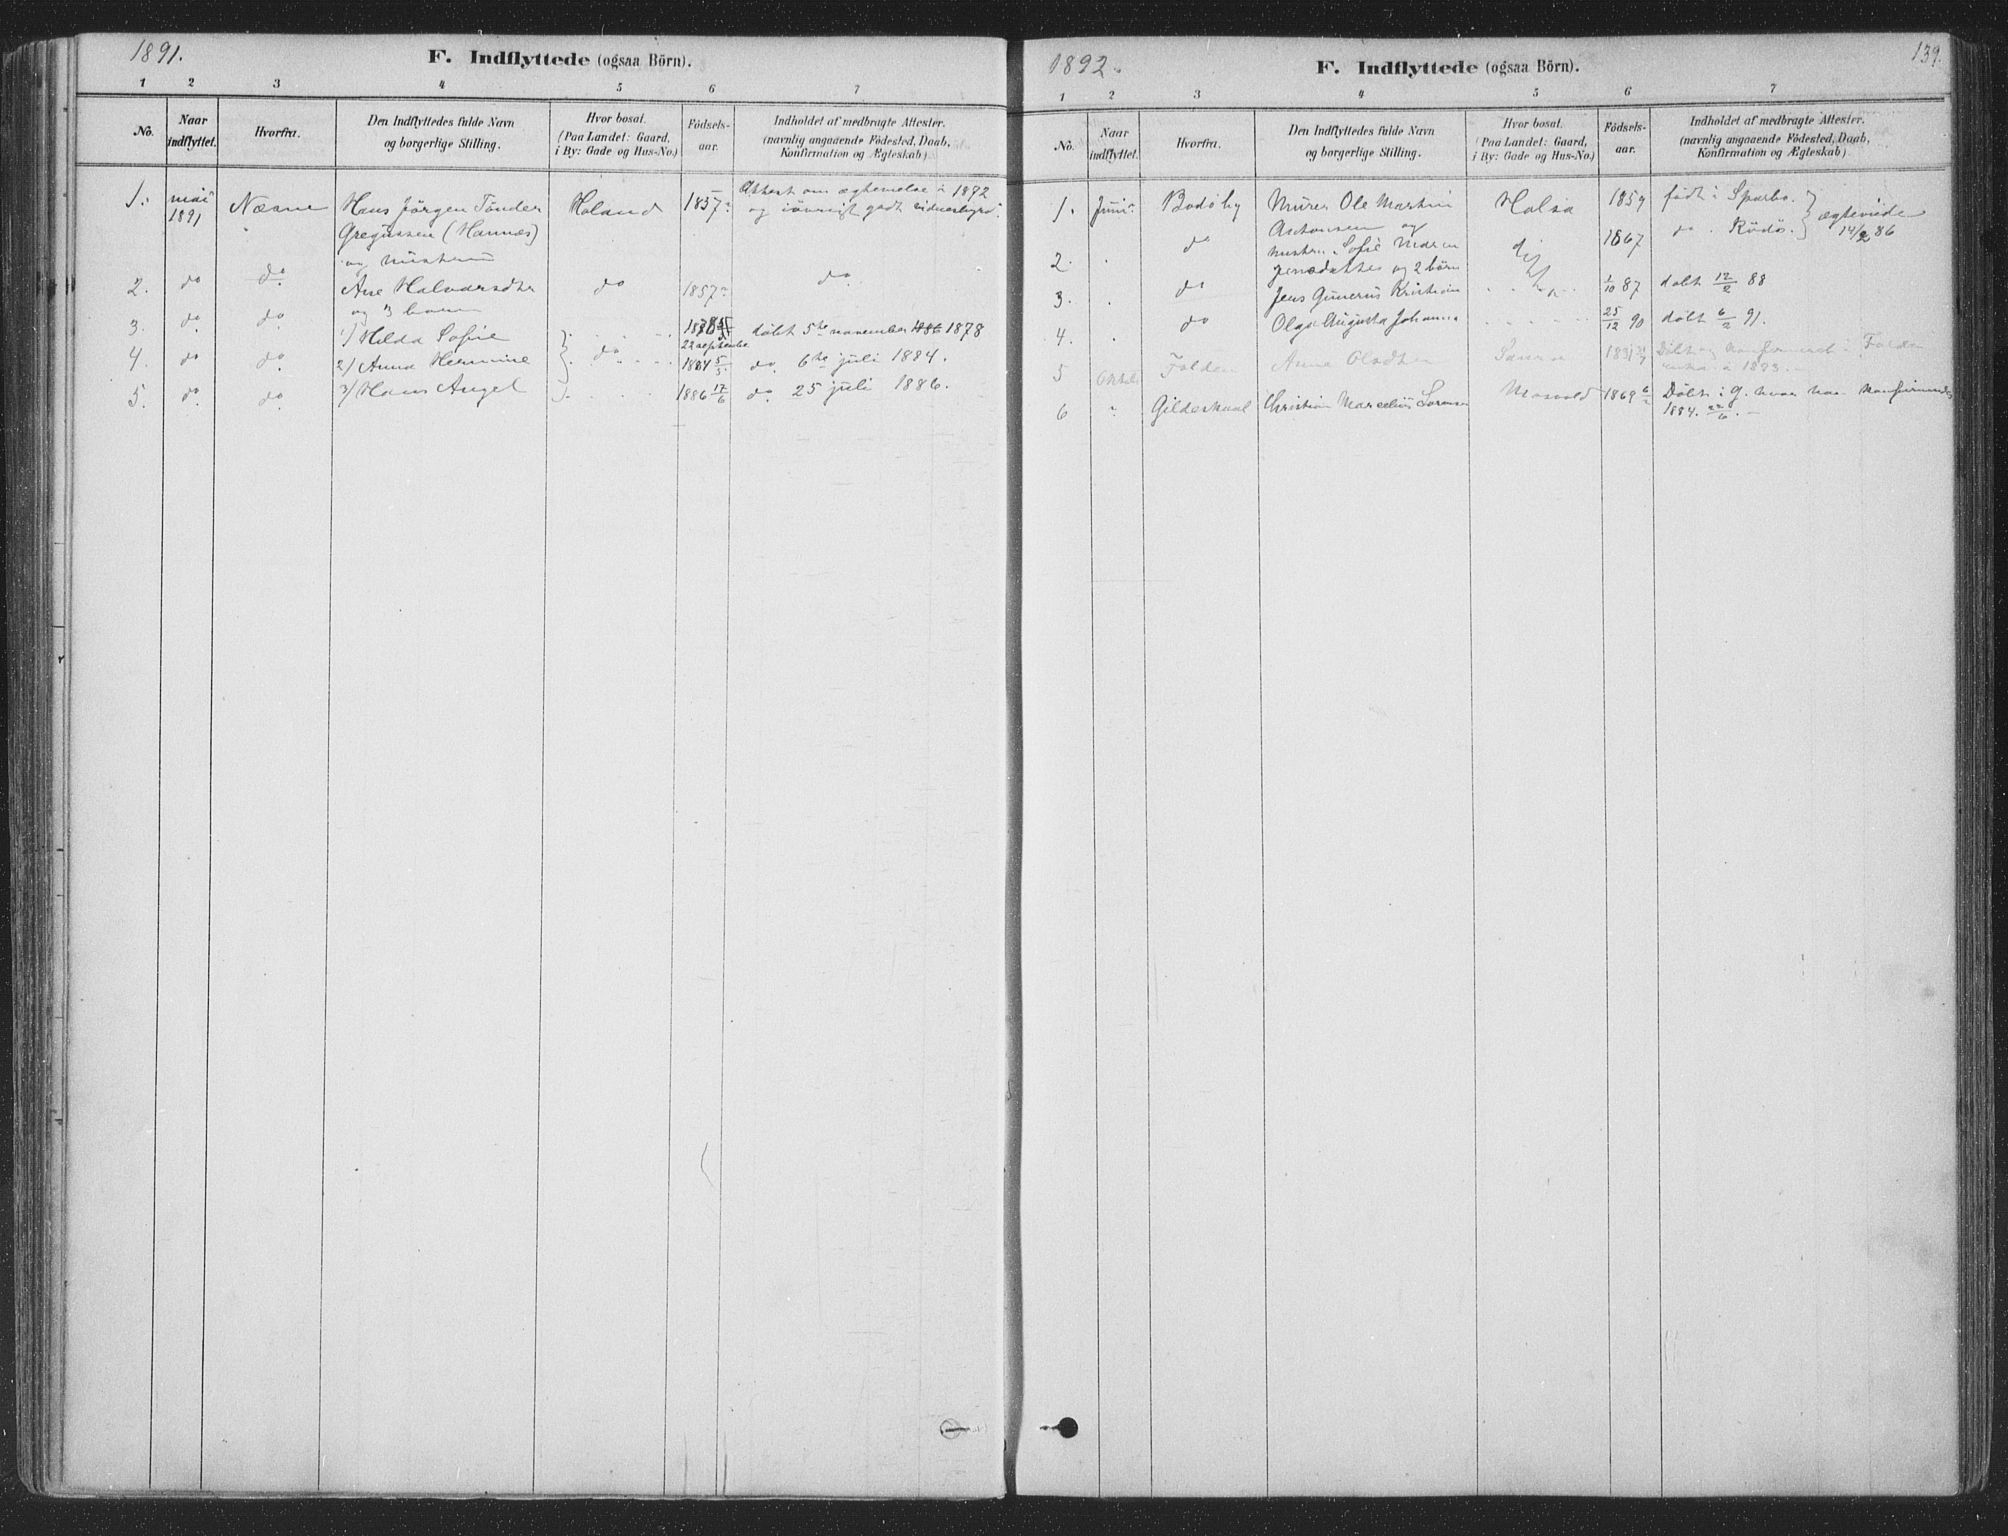 1891.
F. Indflyttede (ogsaa Börn).
1 2 3 4 5 6 7
No.
Naar indflyttet.
Hvorfra.
Den Indflyttedes fulde Navn og borgerlige Stilling.
Hvor bosat. (Paa Landet: Gaard, i By: Gade og Hus-No.)
Födsels-aar.
Indholdet af medbragte Attester. (navnlig angaaende Födested, Daab, Konfirmation og Ægteskab)
1. mai Hans Jörgen Tönder Holand 1857 Attest om
1891 Gregussen (Hannæs) og iövrigt godt vidnesbyrd.
og hustru
2. do do Ane Halvarsdtr do 1857 do
og 3 born
3. do do 1) Hilda Sofie döbt 5te november 1878
22 september
4. do do 2) Anna Hermine do 1884 5/5 do 6te juli 1884.
5. do do 3) Hans Angel 1886 17/6 do 25 juli 1886.
1892.
F. Indflyttede (ogsaa Börn).
139.
1 2 3 4 5 6 7
No.
Naar indflyttet.
Hvorfra.
Den Indflyttedes fulde Navn og borgerlige Stilling.
Hvor bosat. (Paa Landet: Gaard, i By: Gade og Hus-No.)
Födsels-aar.
Indholdet af medbragte Attester. (navnlig angaaende Födested, Daab, Konfirmation og Ægteskab)
1. Juni Bodö by Murer Ole Martin Halsa 1859 født i Sparbo.
Antonsen og ægteviede
2. do hustru Sofie Maren 1867 do Rödö. 14/2 86
og 2 börn
3. do Jens Gunerus Kristian 1/10 87 døbt 12/2 88
4. do Olga Augusta Johanna 25/12 90 døbt 6/2 91.
5 Folden Anna Olsdtr 1831 Döbt og konfirmeret i Folden
enke i 1873.
6 Gildeskaal Christian Marcelius Sörensen Mosvold 1869 Döbt i G. hvor han konfirmeredes
1884. 22/6.